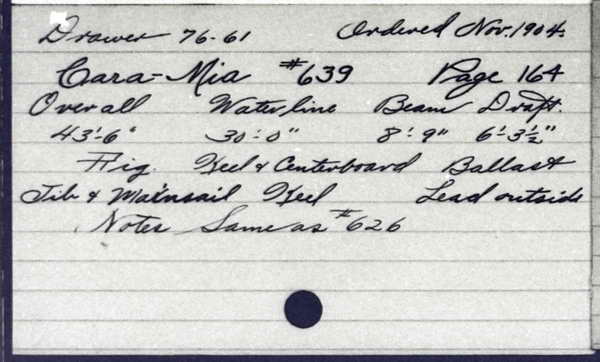 Drawer 76-61 Ordered Nov. 1904.
Cara-Mia #639 Page 164
Over all Water line Beam Draft.
43'-6" 30'-0" 8'-9" 6'-3½"
Rig. Keel & Centerboard Ballast
Jib & Mainsail Keel Lead outside
Notes Same as #626